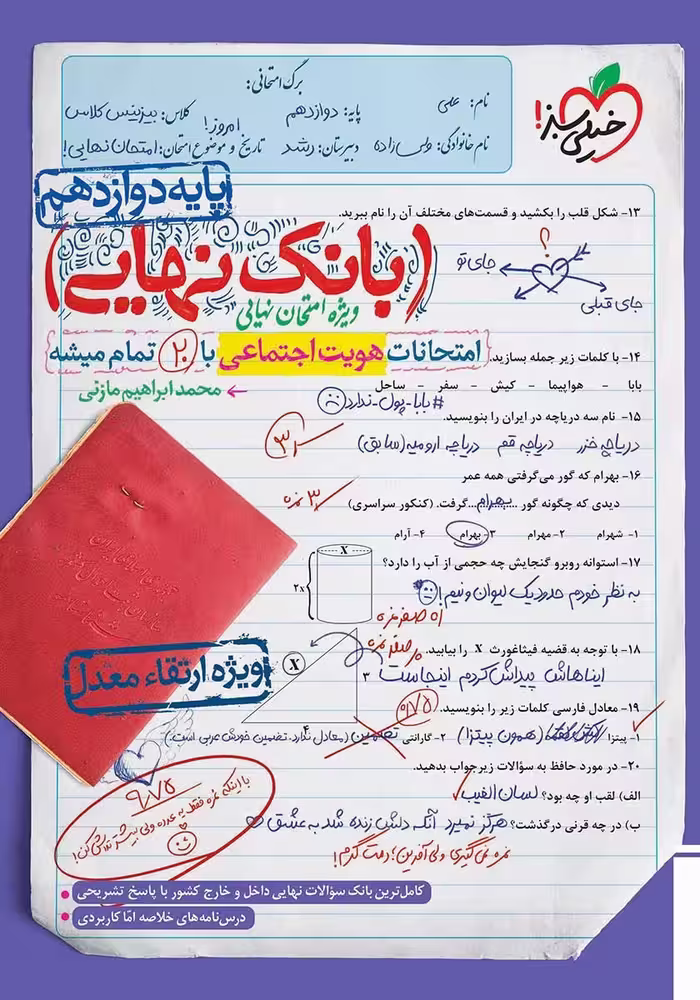 برگ امتحانی:
نام: علی
پایه: دوازدهم
کلاس: بیزینس کلاس
نام خانوادگی: ولی‌زاده
دبیرستان: رشد
تاریخ و موضوع امتحان: امروز! امتحان نهایی!
خیلی سبز!
پایه دوازدهم
۱۳- شکل قلب را بکشید و قسمت‌های مختلف آن را نام ببرید.
؟
جای تو
جای قبلی
(بانک نهایی)
ویژه امتحان نهایی
امتحانات هویت اجتماعی با ۲۰ تمام میشه
محمد ابراهیم مازنی
۱۴- با کلمات زیر جمله بسازید.
بابا - هواپیما - کیش - سفر - ساحل
#بابا-پول-ندارد
۱۵- نام سه دریاچه در ایران را بنویسید.
دریاچه خزر دریاچه قم دریاچه ارومیه (سابق)
۱۶- بهرام که گور می‌گرفتی همه عمر
دیدی که چگونه گور ...بهرام... گرفت. (کنکور سراسری)
۳ نمره
۱- شهرام ۲- مهرام ۳- بهرام ۴- آرام
۱۷- استوانه روبرو گنجایش چه حجمی از آب را دارد؟
X
۲x
به نظر خودم حدود یک لیوان و نیم!
اه صفر نمره
۱۸- با توجه به قضیه فیثاغورث X را بیابید.
صفر نمره
X
۳
۴
ایناهاش پیداش کردم اینجاست
ویژه ارتقاء معدل
۱۹- معادل فارسی کلمات زیر را بنویسید.
۰/۷۵
۱- پیتزا (همون پیتزا) ۲- گارانتی تضمین (معادل نداره. تضمین خودش عربی است.)
۲۰- در مورد حافظ به سؤالات زیر جواب بدهید.
الف) لقب او چه بود؟ لسان الغیب
ب) در چه قرنی درگذشت؟ هرگز نمیرد آنکه دلش زنده شد به عشق
نمره نمی‌گیری ولی آفرین! دمت گرم!
۹/۷۵
با اینکه نمره فقط یه عدده ولی بیشتر تلاش کن!
کامل‌ترین بانک سؤالات نهایی داخل و خارج کشور با پاسخ تشریحی
درس‌نامه‌های خلاصه امّا کاربردی